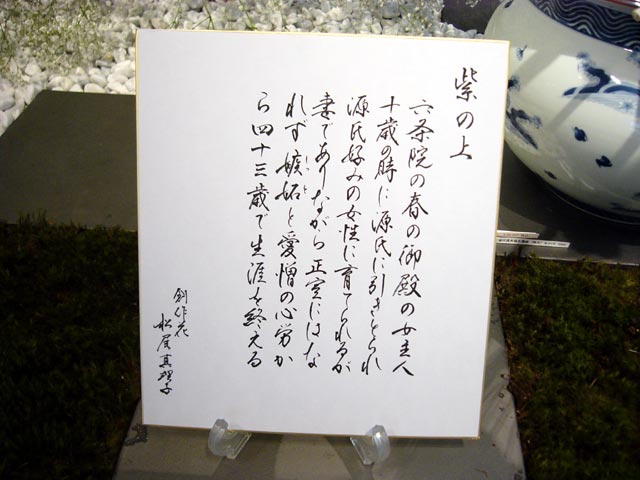 紫の上
六条院の春の御殿の女主人
十歳の時に源氏に引きとられ
源氏好みの女性に育てられるが
妻でありながら正室にはな
れず嫉妬と愛憎の心労か
ら四十三歳で生涯を終える
創作花
松尾真理子